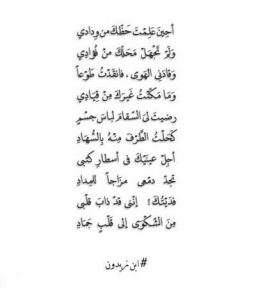 أحينَ عَلِمْتَ حَظَّكَ من وِدادي
وَلَمْ تَجْهَلْ مَحَلَّكَ منْ فُؤادِي
وَقادَنِي الهَوى، فانقَدْتُ طَوْعاً
وَمَا مَكَّنْتُ غَيرَكَ مِنْ قِيَادِي
رضيتَ ليَ السّقامَ لباسَ جسْمٍ
كَحَلْتُ الطَّرْفَ مِنْهُ بِالسُّهَادِ
أجِلْ عينَيْكَ في أسطارِ كتبي
تجدْ دمْعي مزَاجاً للمِدادِ
فدَيْتُكَ! إنّني قدْ ذابَ قلْبي
مِنَ الشّكْوَى إلى قَلْبٍ جَمَادِ
#ابن زيدون